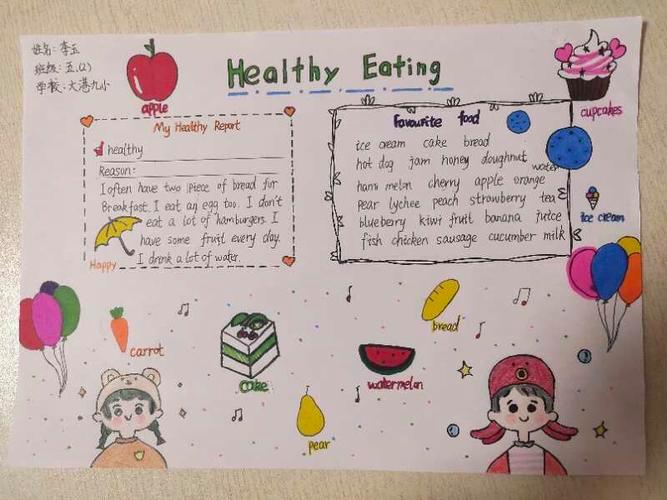 姓名：李玉
班级：五.(2)
学校：大港九小
Healthy Eating
apple
cupcakes
My Healthy Report
healthy
Reason:
I often have two piece of bread fur
Breakfast. I eat an egg too. I don't
eat a lot of hamburgers. I
have some fruit every day.
I drenk a lot of water.
Happy
Favourite food
ice cream cake bread
hot dog jam honey doughnut
water
hami melon cherry apple orange
pear lychee peach strawberry tea
blueberry kiwi fruit banana juice
fish chicken sausage cucumber milk
ice cream
carrot
cake
bread
watermelon
pear